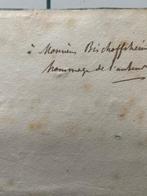 à Monsieur Bischoffsheim
hommage de l'auteur